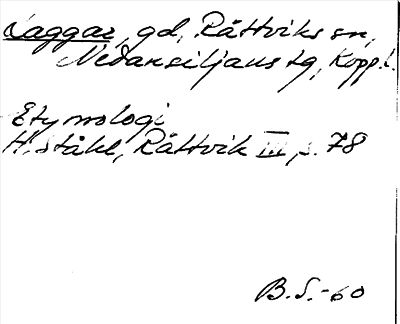 Laggar, gd, Rättviks sn,
Nedansiljans tg, Kopp.l.
Etymologi
H. Ståhl, Rättvik III s. 78
B.S.-60